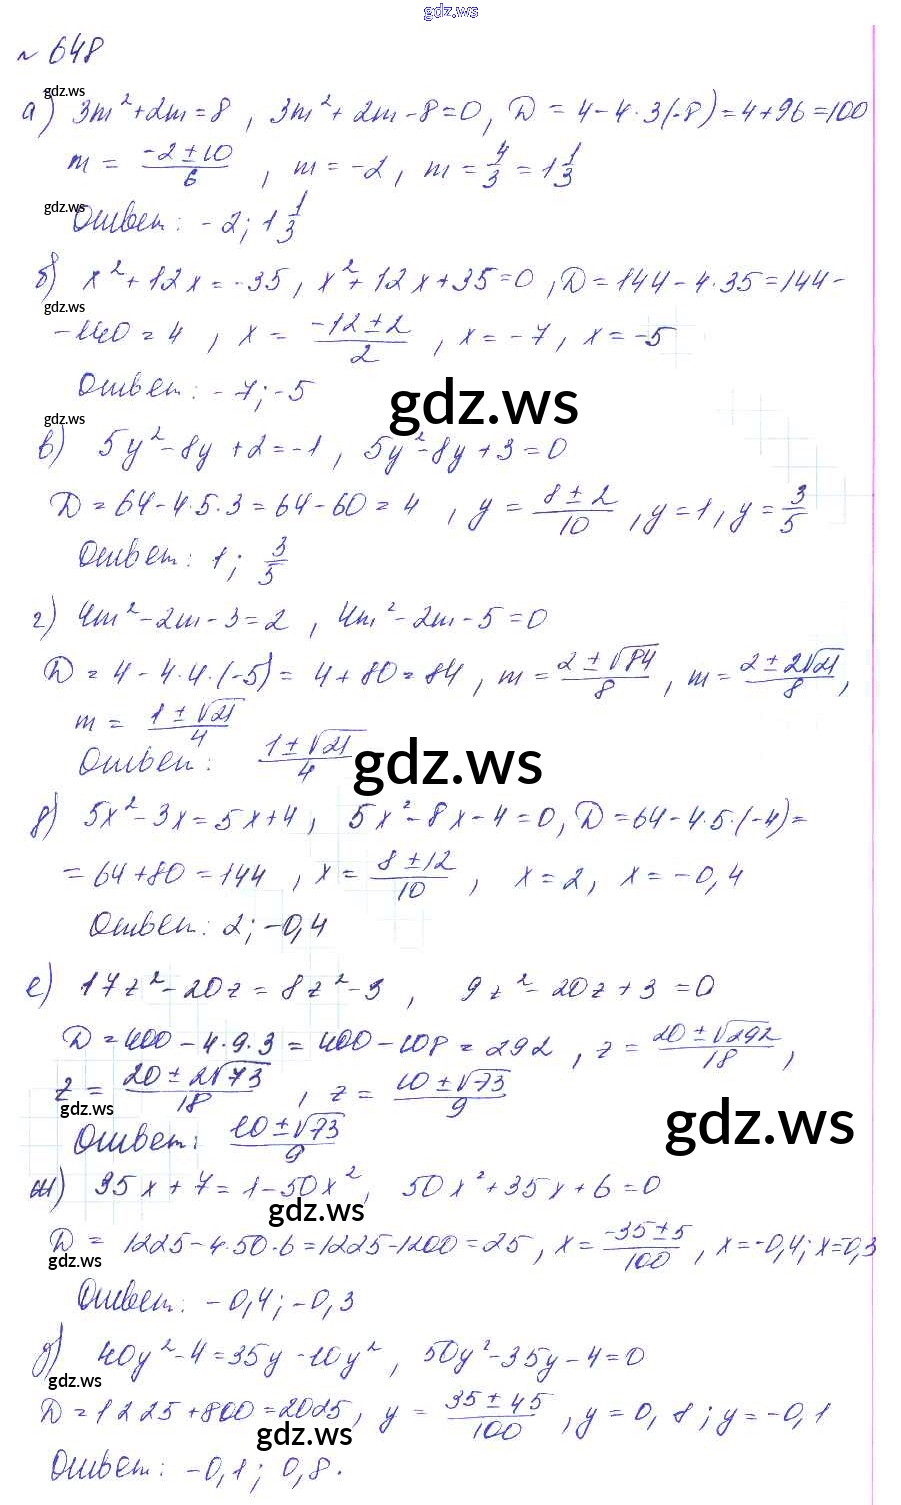 gdz.ws
№ 648
gdz.ws
а) 3m² + 2m = 8 , 3m² + 2m - 8 = 0, D = 4 - 4·3(-8) = 4 + 96 = 100
m = (-2 ± 10)/6 , m = -2 , m = 4/3 = 1 1/3
gdz.ws
Ответ: -2; 1 1/3
б) x² + 12x = -35 , x² + 12x + 35 = 0 , D = 144 - 4·35 = 144 -
gdz.ws
- 140 = 4 , x = (-12 ± 2)/2 , x = -7 , x = -5
Ответ: -7; -5
gdz.ws
gdz.ws
в) 5y² - 8y + 2 = -1 , 5y² - 8y + 3 = 0
D = 64 - 4·5·3 = 64 - 60 = 4 , y = (8 ± 2)/10 , y = 1 , y = 3/5
Ответ: 1; 3/5
г) 4m² - 2m - 3 = 2 , 4m² - 2m - 5 = 0
D = 4 - 4·4·(-5) = 4 + 80 = 84 , m = (2 ± √84)/8 , m = (2 ± 2√21)/8 ,
m = (1 ± √21)/4
Ответ: (1 ± √21)/4
gdz.ws
д) 5x² - 3x = 5x + 4 , 5x² - 8x - 4 = 0 , D = 64 - 4·5·(-4) =
= 64 + 80 = 144 , x = (8 ± 12)/10 , x = 2 , x = -0,4
Ответ: 2; -0,4
е) 17z² - 20z = 8z² - 3 , 9z² - 20z + 3 = 0
D = 400 - 4·9·3 = 400 - 108 = 292 , z = (20 ± √292)/18 ,
z = (20 ± 2√73)/18 , z = (10 ± √73)/9
gdz.ws
gdz.ws
Ответ: (10 ± √73)/9
ж) 35x + 7 = 1 - 50x² , 50x² + 35x + 6 = 0
gdz.ws
D = 1225 - 4·50·6 = 1225 - 1200 = 25 , x = (-35 ± 5)/100 , x = -0,4; x = -0,3
gdz.ws
Ответ: -0,4; -0,3
д) 40y² - 4 = 35y - 10y² , 50y² - 35y - 4 = 0
gdz.ws
D = 1225 + 800 = 2025 , y = (35 ± 45)/100 , y = 0,8; y = -0,1
gdz.ws
Ответ: -0,1; 0,8.